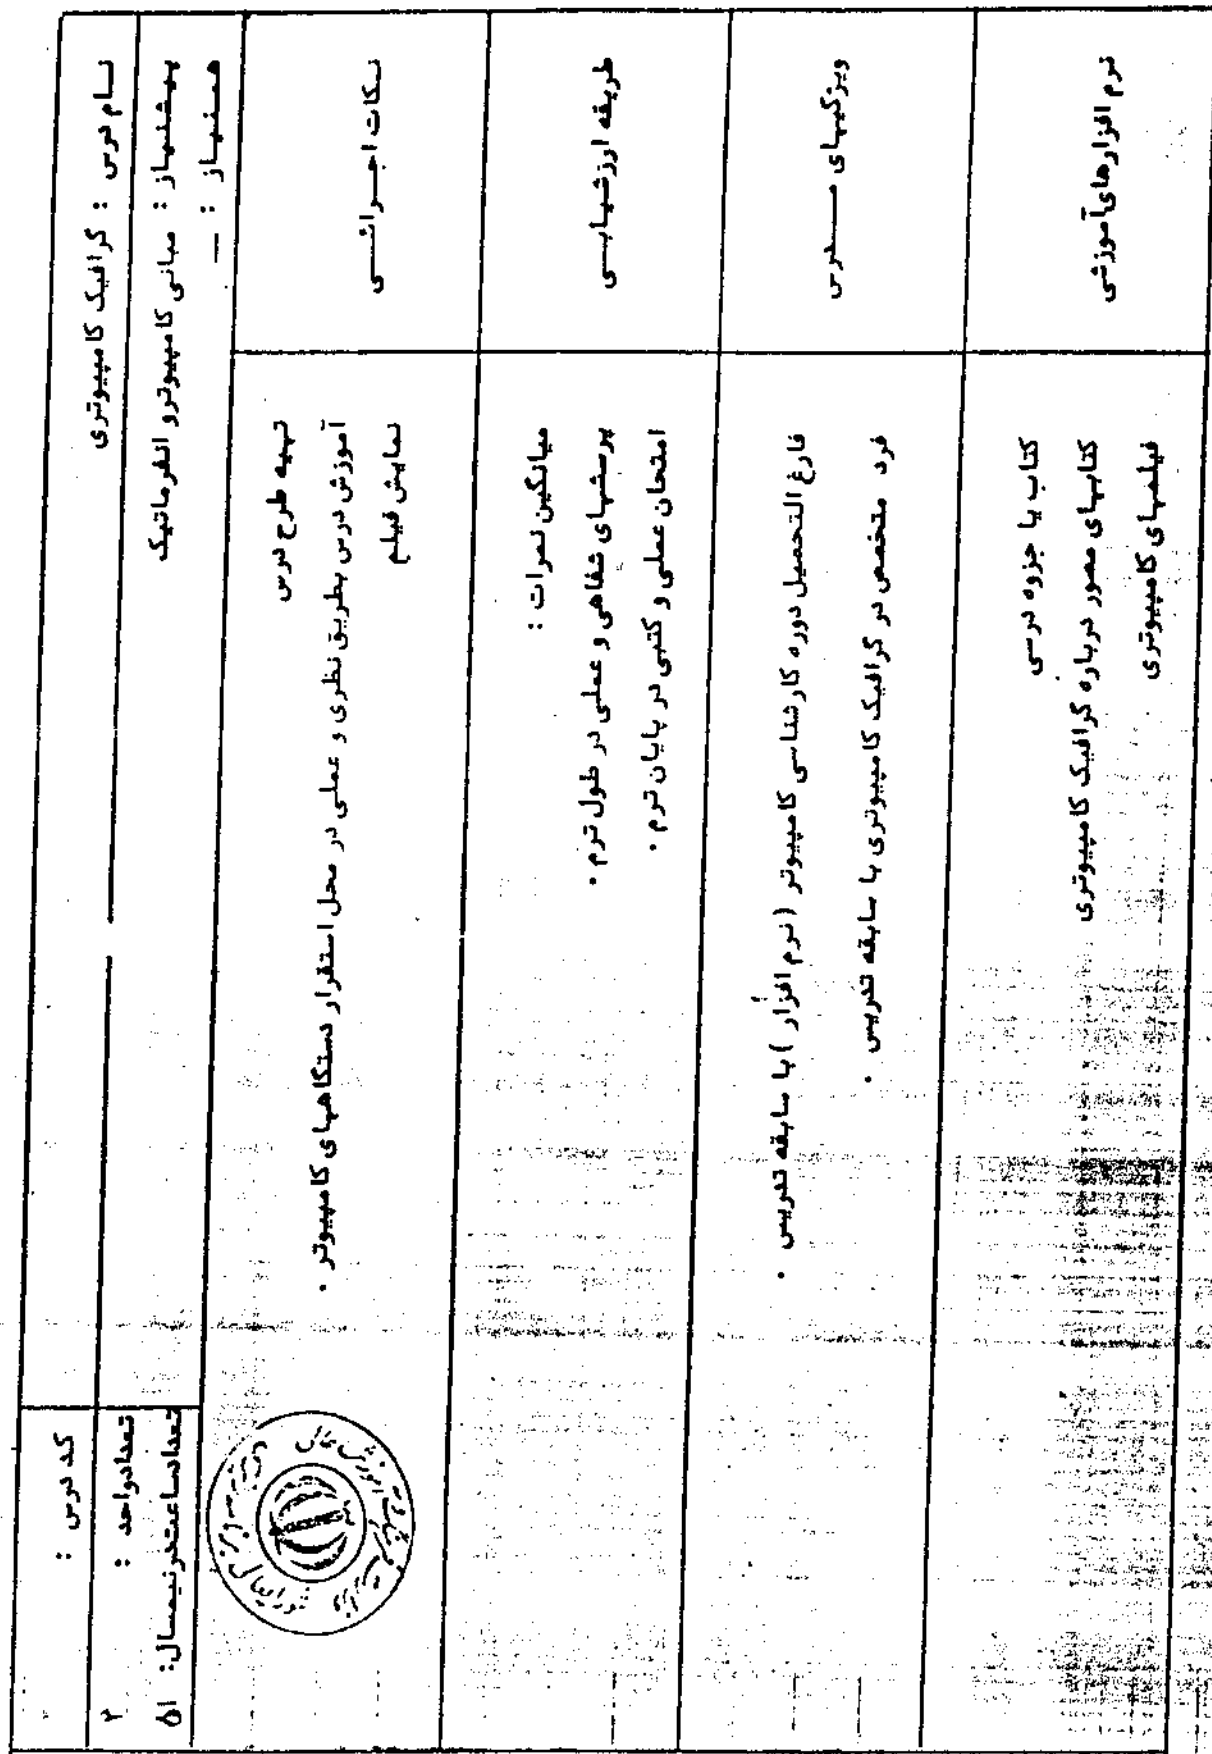 نام درس : گرافیک کامپیوتری
کد درس :
پیشنیاز : مبانی کامپیوتر و انفرماتیک
تعداد واحد : ۲
همنیاز : —
تعداد ساعت در نیمسال : ۵۱
نکات اجرائی
تهیه طرح درس
آموزش درس بطریق نظری و عملی در محل استقرار دستگاههای کامپیوتر .
نمایش فیلم
طریقه ارزشیابی
میانگین نمرات :
پرسشهای شفاهی و عملی در طول ترم .
امتحان عملی و کتبی در پایان ترم .
ویژگیهای مدرس
فارغ التحصیل دوره کارشناسی کامپیوتر (نرم افزار) با سابقه تدریس .
فرد متخصص در گرافیک کامپیوتری با سابقه تدریس .
نرم افزارهای آموزشی
کتاب یا جزوه درسی
کتابهای مصور درباره گرافیک کامپیوتری
فیلمهای کامپیوتری